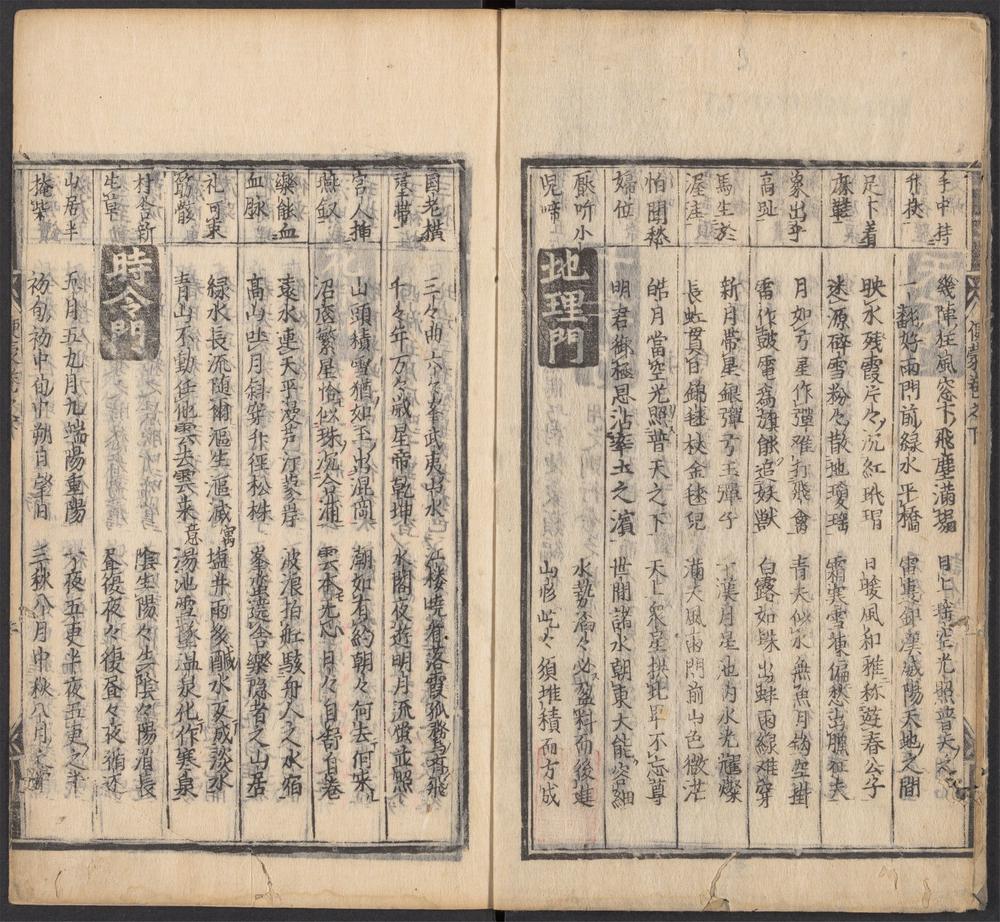 手中持
足下着
麻鞋
象出乎
高趾
馬生於
渥洼
怕聞愁
婦位
厭听小
兒啼
幾陣狂風窓下飛塵滿榻 日上 空光照普天之
一翻好雨門前緑水平橋 天地之間
映水残霞片々沉紅玳瑁 日暖風和雅称遊春公子
迷源碎雪粉々散地瓊瑶 霜寒雪凍偏愁出臘征夫
月如弓星作弹难打飛禽 青天似水無魚月钩空掛
雷作鼓電為旗能追妖獸 白露如珠出蚌雨線难穿
新月帶星銀彈弓玉彈子 漢月星池内水光寵燦
長虹貫日錦毬杖金毬兒 滿天風雨門前山色微茫
皓月當空光照普天之下 天上衆星拱北早不忘尊
明君御極恩沾率土之濱 世間諸水朝東大能容細
地理門
水勢滔々必盈科而後進
山形屹々須堆積而方成
國老橫
宮人挿
燕釵
藥能血
血脉
礼可束
筋骸
村舍新
生草
山居半
掩柴
三々曲六々峯武夷山水 江楼晓看落霞孤鶩髙飛
千々年万々歲星帝乾坤 水閣夜遊明月流螢並照
山頭積雪猶如玉出混崗 潮如有約朝々何去何來
沼底繁星恰似珠沉合浦 雲本尢心日々自舒自卷
遠水連天平波芦汀蓼岸 波浪拍舡駭舟人之水宿
髙山出月斜穿竹徑松株 峯巒遶舍樂隐者之山居
緑水長流随爾漚生漚滅 塩井雨多鹹水反成淡水
青山不動任他雲去雲來意 湯池雪墜温泉化作寒泉
時令門
陰生陽々生陰々陽消長
昼復夜々復昼々夜循还
五月五九月九端陽重陽 夜五更半夜五更之半
初旬初中旬中朔日望日 三秋八月中秋八月之